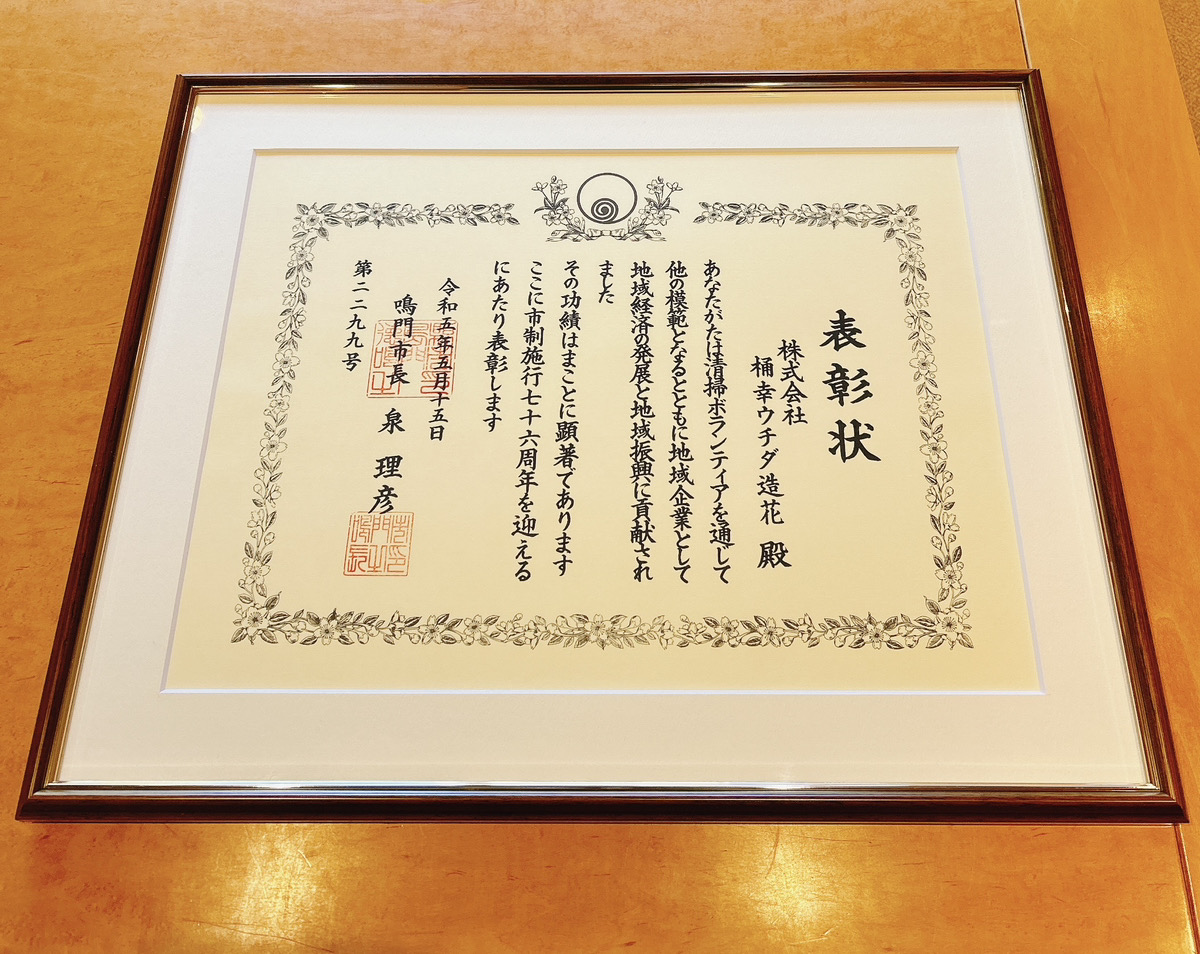 表彰状
株式会社
桶幸ウチダ造花 殿
あなたがたは清掃ボランティアを通じて
他の模範となるとともに地域企業として
地域経済の発展と地域振興に貢献され
ました
その功績はまことに顕著であります
ここに市制施行七十六周年を迎える
にあたり表彰します
令和五年五月十五日
鳴門市長 泉 理彦
第二二九九号